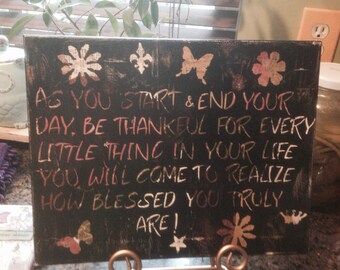 AS YOU START & END YOUR
DAY, BE THANKFUL FOR EVERY
LITTLE THING IN YOUR LIFE
YOU WILL COME TO REALIZE
HOW BLESSED YOU TRULY
ARE!